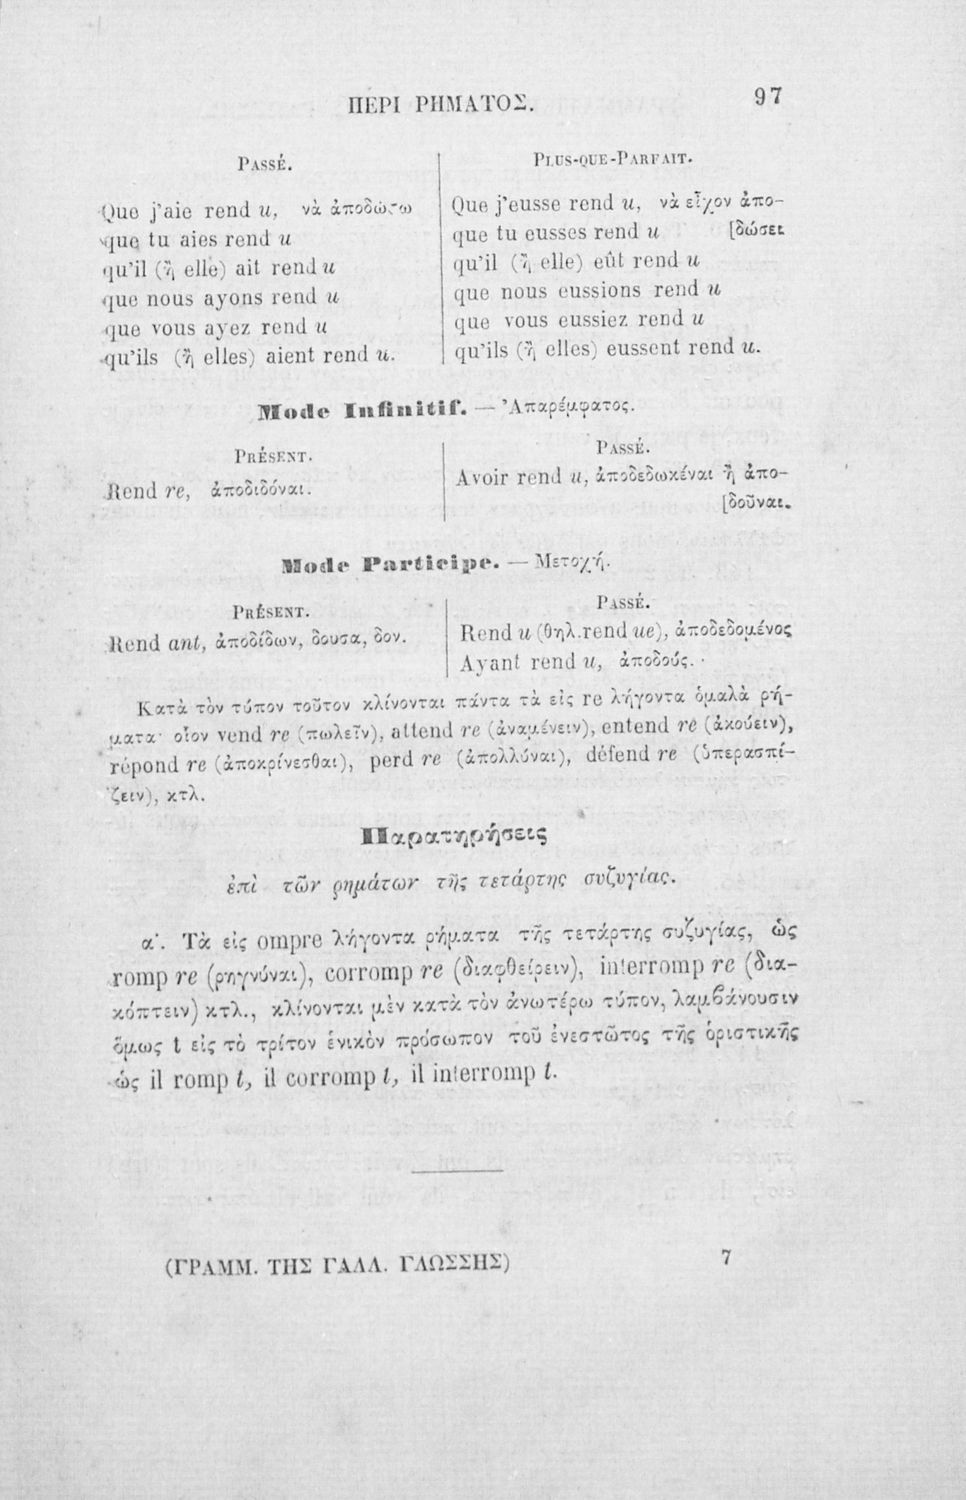 ΠΕΡΙ ΡΗΜΑΤΟΣ.
97
PASSÉ.
Que j'aie rend u, νὰ ἀποδώσω
que tu aies rend u
qu'il (ἢ elle) ait rend u
que nous ayons rend u
que vous ayez rend u
qu'ils (ἢ elles) aient rend u.
PLUS-QUE-PARFAIT.
Que j'eusse rend u, νὰ εἶχον ἀπο-
que tu eusses rend u [δώσει
qu'il (ἢ elle) eût rend u
que nous eussions rend u
que vous eussiez rend u
qu'ils (ἢ elles) eussent rend u.
Mode Infinitif. — Ἀπαρέμφατος.
PRÉSENT.
Rend re, ἀποδιδόναι.
PASSÉ.
Avoir rend u, ἀποδεδωκέναι ἢ ἀπο-
[δοῦναι.
Mode Participe. — Μετοχή.
PRÉSENT.
Rend ant, ἀποδίδων, δουσα, δον.
PASSÉ.
Rend u (θηλ. rend ue), ἀποδεδομένος
Ayant rend u, ἀποδούς.
Κατὰ τὸν τύπον τοῦτον κλίνονται πάντα τὰ εἰς re λήγοντα ὁμαλὰ ρή-
ματα· οἷον vend re (πωλεῖν), attend re (ἀναμένειν), entend re (ἀκούειν),
répond re (ἀποκρίνεσθαι), perd re (ἀπολλύναι), défend re (ὑπερασπί-
ζειν), κτλ.
Παρατηρήσεις
ἐπὶ τῶν ρημάτων τῆς τετάρτης συζυγίας.
α΄. Τὰ εἰς ompre λήγοντα ρήματα τῆς τετάρτης συζυγίας, ὡς
romp re (ρηγνύναι), corromp re (διαφθείρειν), interromp re (δια-
κόπτειν) κτλ., κλίνονται μὲν κατὰ τὸν ἀνωτέρω τύπον, λαμβάνουσιν
ὅμως t εἰς τὸ τρίτον ἑνικὸν πρόσωπον τοῦ ἐνεστῶτος τῆς ὁριστικῆς
ὡς il romp t, il corromp t, il interromp t.
(ΓΡΑΜΜ. ΤΗΣ ΓΑΛΛ. ΓΛΩΣΣΗΣ)
7